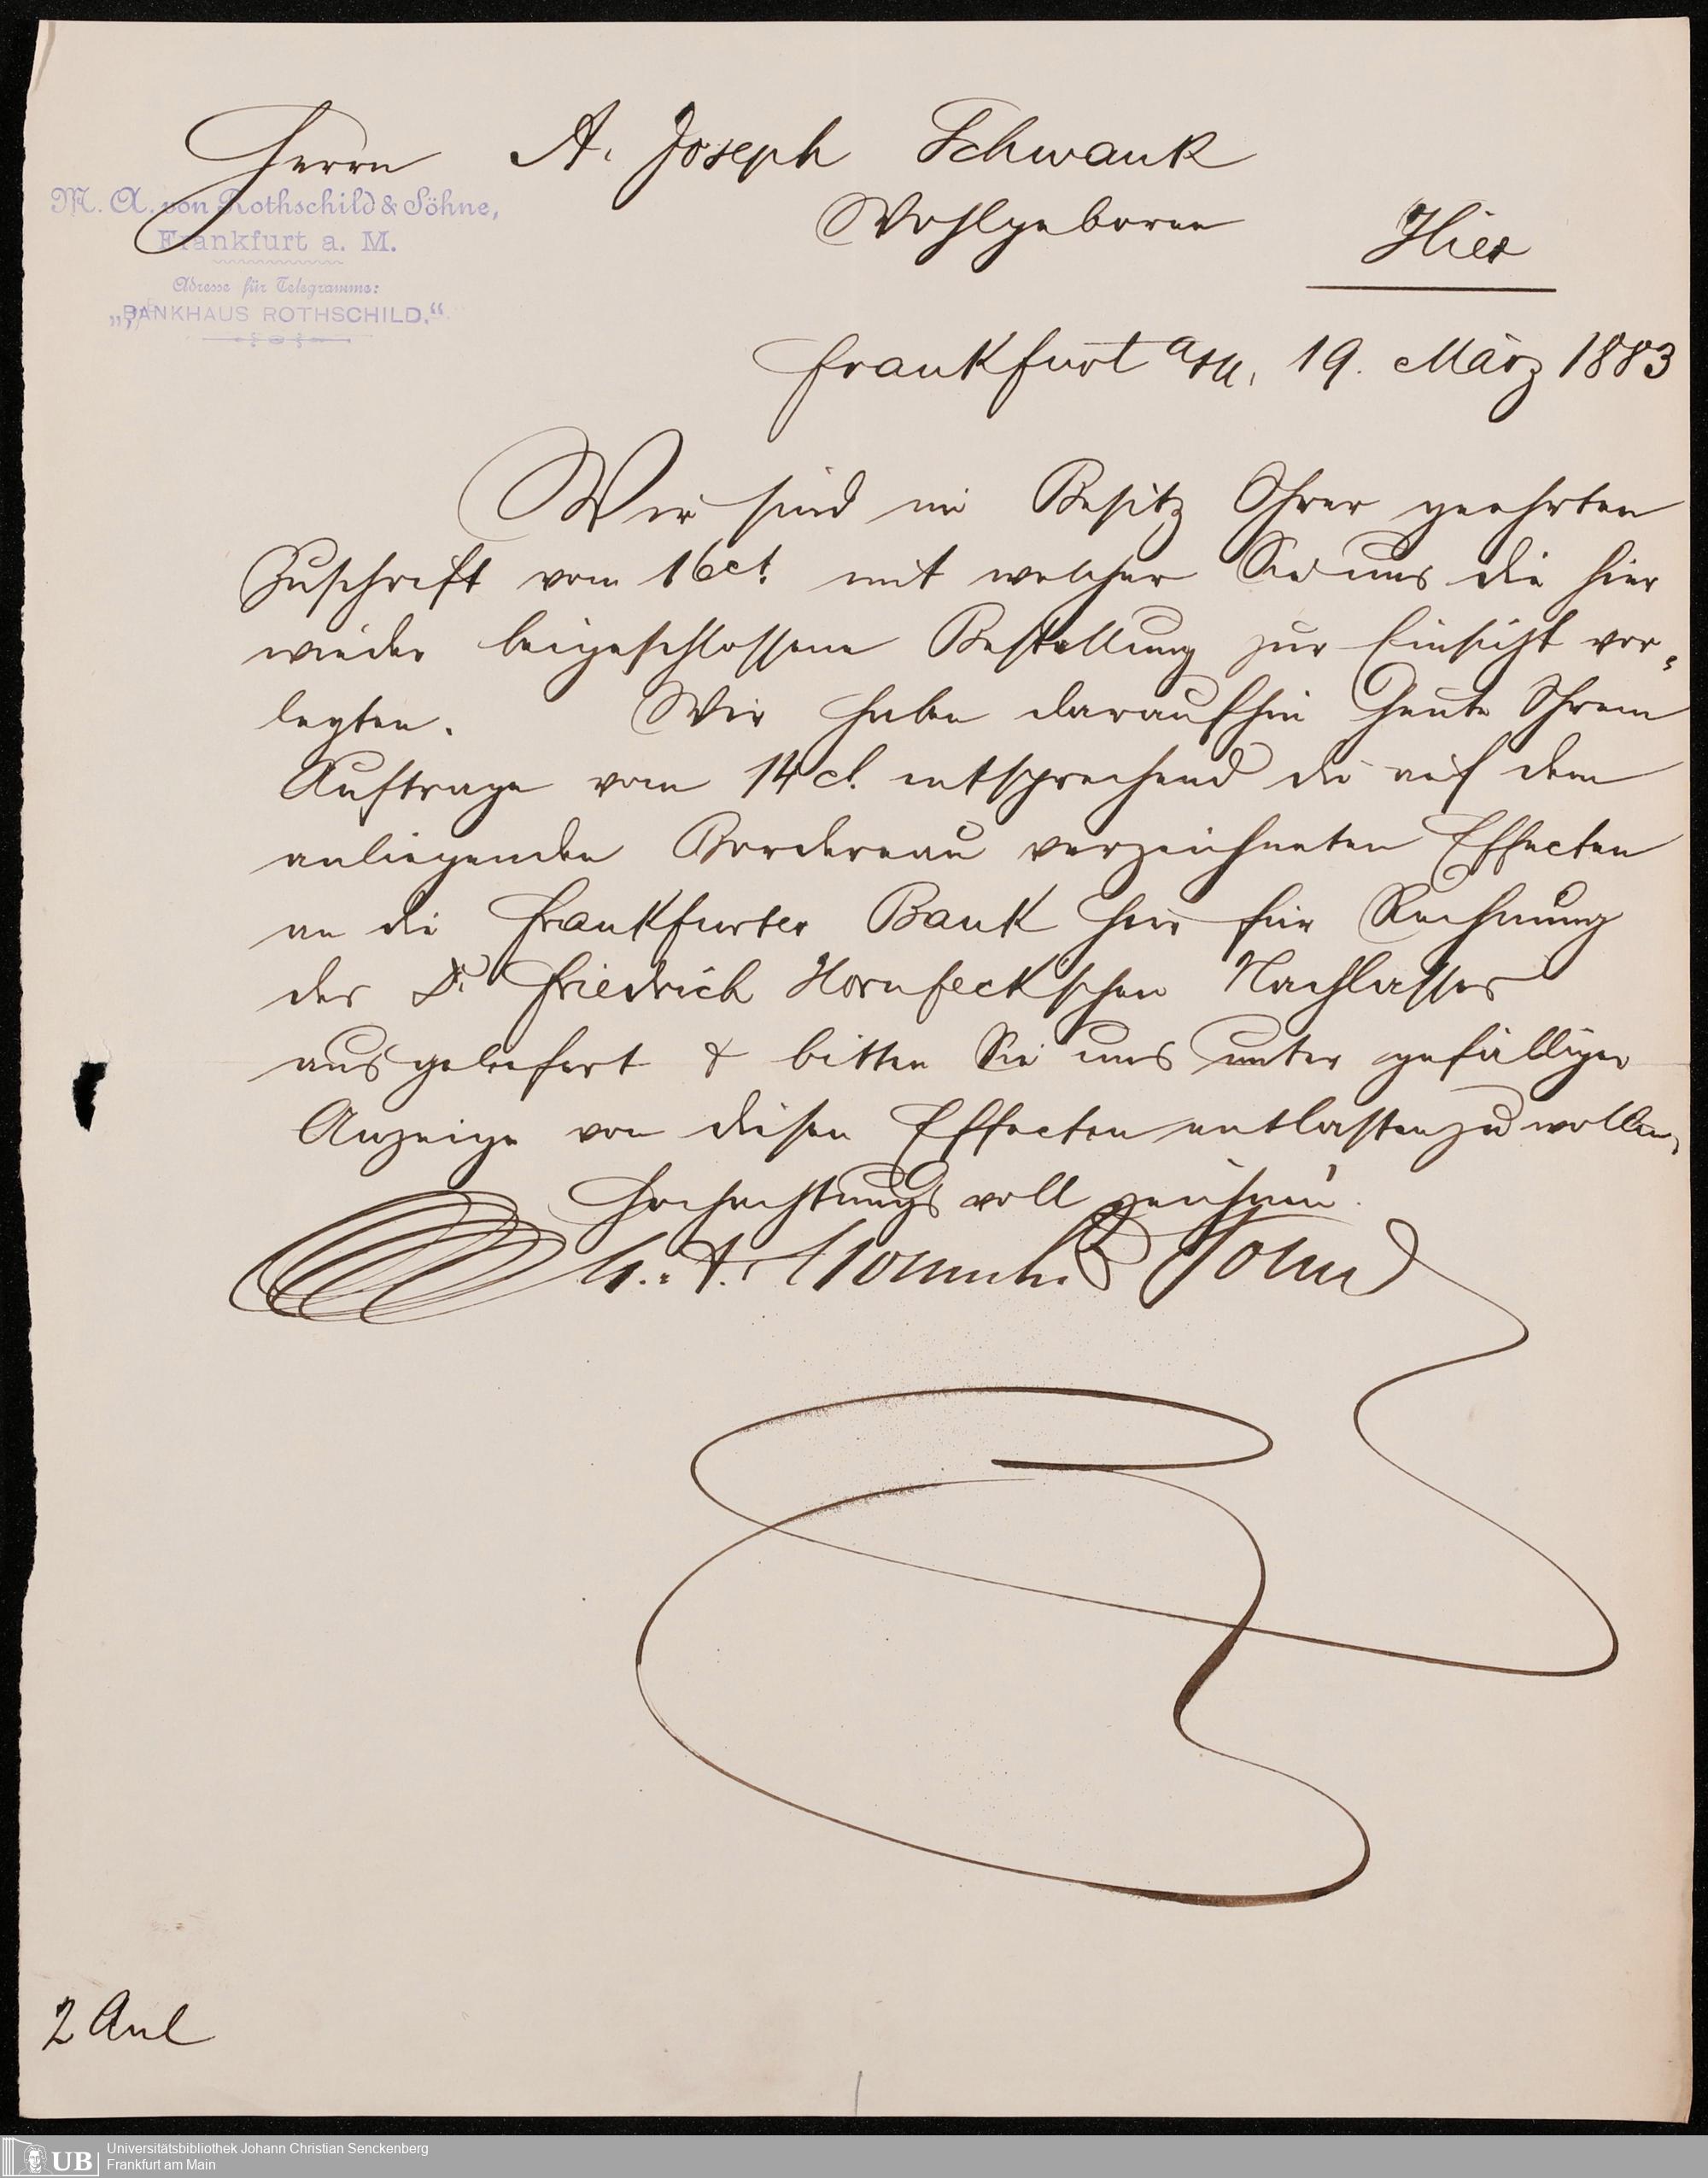 Herrn A. Joseph Schwank
M. A. von Rothschild & Söhne,
Wohlgeboren
Hier
Frankfurt a. M.
Adresse für Telegramme:
„BANKHAUS ROTHSCHILD.“
Frankfurt a/M, 19. März 1883
Wir sind im Besitz Ihrer geehrten
Zuschrift vom 16 ct. mit welcher Sie uns die hier
wieder beigeschlossene Bestallung zur Einsicht vor-
legten. Wir haben daraufhin heute Ihrem
Auftrage vom 14 ct. entsprechend die auf dem
anliegenden Bordereau verzeichneten Effecten
an die Frankfurter Bank hier für Rechnung
des Dr. Friedrich Hornfeck'schen Nachlasses
ausgeliefert & bitten Sie uns unter gefälliger
Anzeige von diesen Effecten entlasten zu wollen,
Hochachtungsvoll zeichnend
2 Anl
UB Universitätsbibliothek Johann Christian Senckenberg
Frankfurt am Main